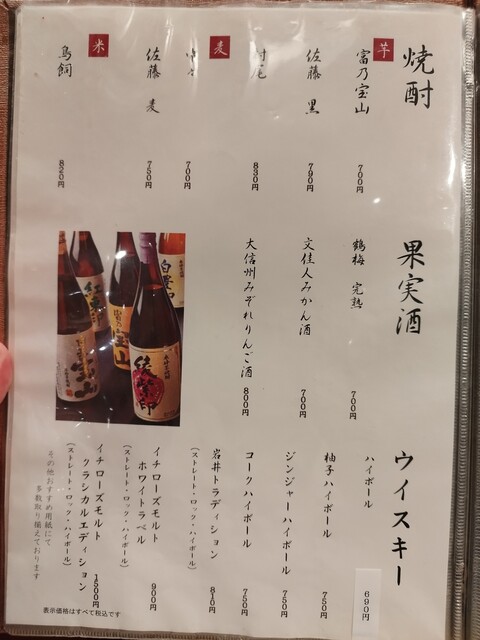 焼酎
芋
富乃宝山 700円
佐藤 黒 790円
村尾 830円
麦
700円
佐藤 麦 750円
米
鳥飼 820円
果実酒
鶴梅 完熟 700円
文佳人みかん酒 700円
大信州みぞれりんご酒 800円
ウイスキー
ハイボール 690円
柚子ハイボール 750円
ジンジャーハイボール 750円
コークハイボール 750円
岩井トラディション 810円
(ストレート・ロック・ハイボール)
イチローズモルト
ホワイトラベル 900円
(ストレート・ロック・ハイボール)
イチローズモルト
クラシカルエディション 1500円
(ストレート・ロック・ハイボール)
その他おすすめ用紙にて
多数取り揃えております
表示価格はすべて税込です